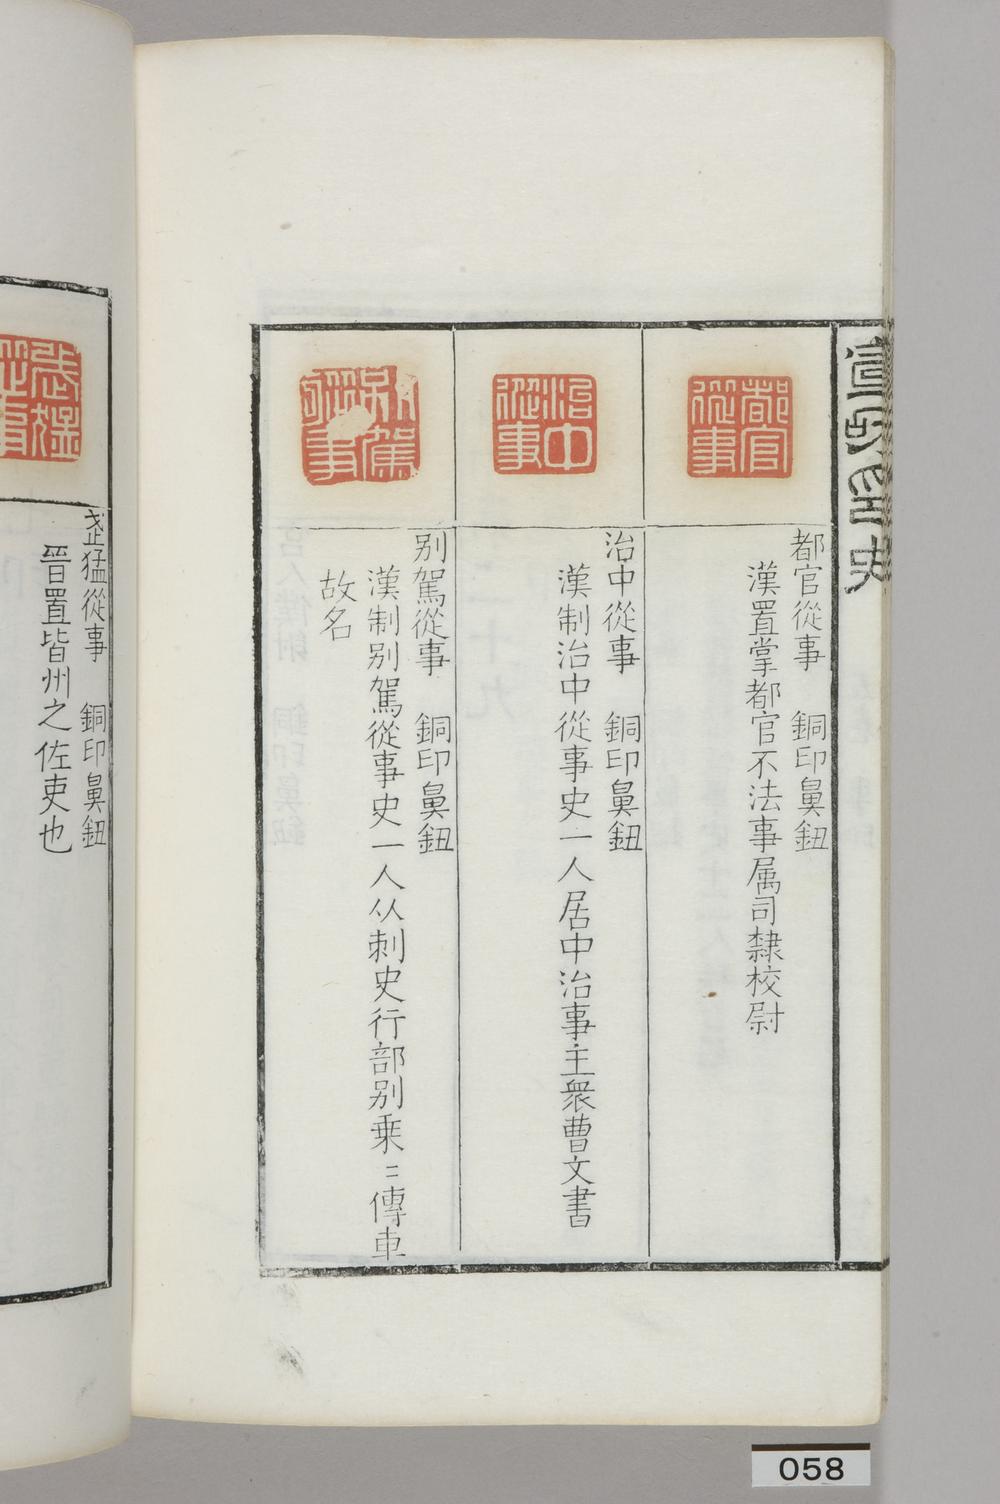 宣和印史
都官從事
都官從事　銅印鼻鈕
漢置掌都官不法事属司隸校尉
治中從事
治中從事　銅印鼻鈕
漢制治中從事史一人居中治事主衆曹文書
别駕從事
别駕從事　銅印鼻鈕
漢制别駕從事史一人从刺史行部别乗〻傳車
故名
武猛從事
武猛從事　銅印鼻鈕
晉置皆州之佐吏也
058